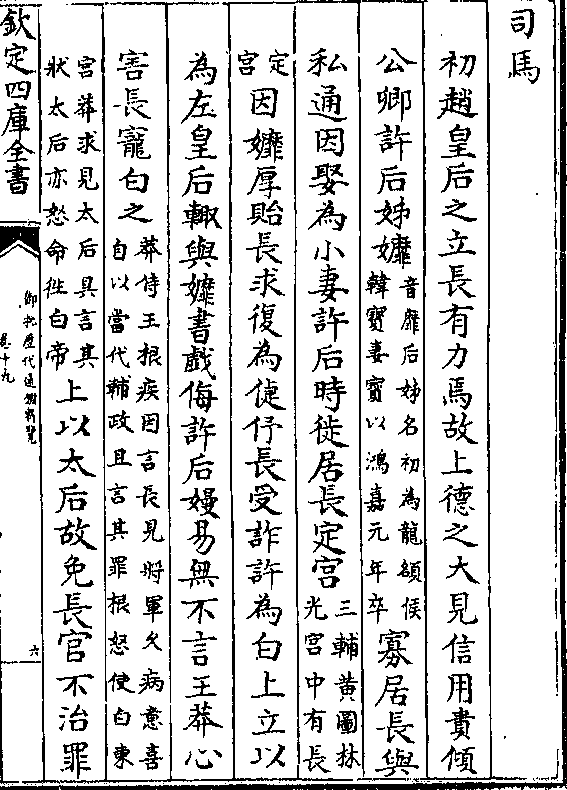 司馬
初趙皇后之立長有力焉故上德之大見信用貴傾
公卿許后姊㜷音靡后姊名初為龍頟侯
韓寶妻寶以鴻嘉元年卒寡居長與
私通因娶為小妻許后時徙居長定宮三輔黄圖林
光宮中有長
定
宮因㜷厚貽長求復為倢伃長受詐許為白上立以
為左皇后輙與㜷書戲侮許后嫚易無不言王莽心
害長寵白之莽侍王根疾因言長見將軍久病意喜
自以當代輔政且言其罪根怒使白東
宮莽求見太后具言其
狀太后亦怒命徃白帝上以太后故免長官不治罪
欽定四庫全書
御批歷代通鑑輯覽
卷十九
六